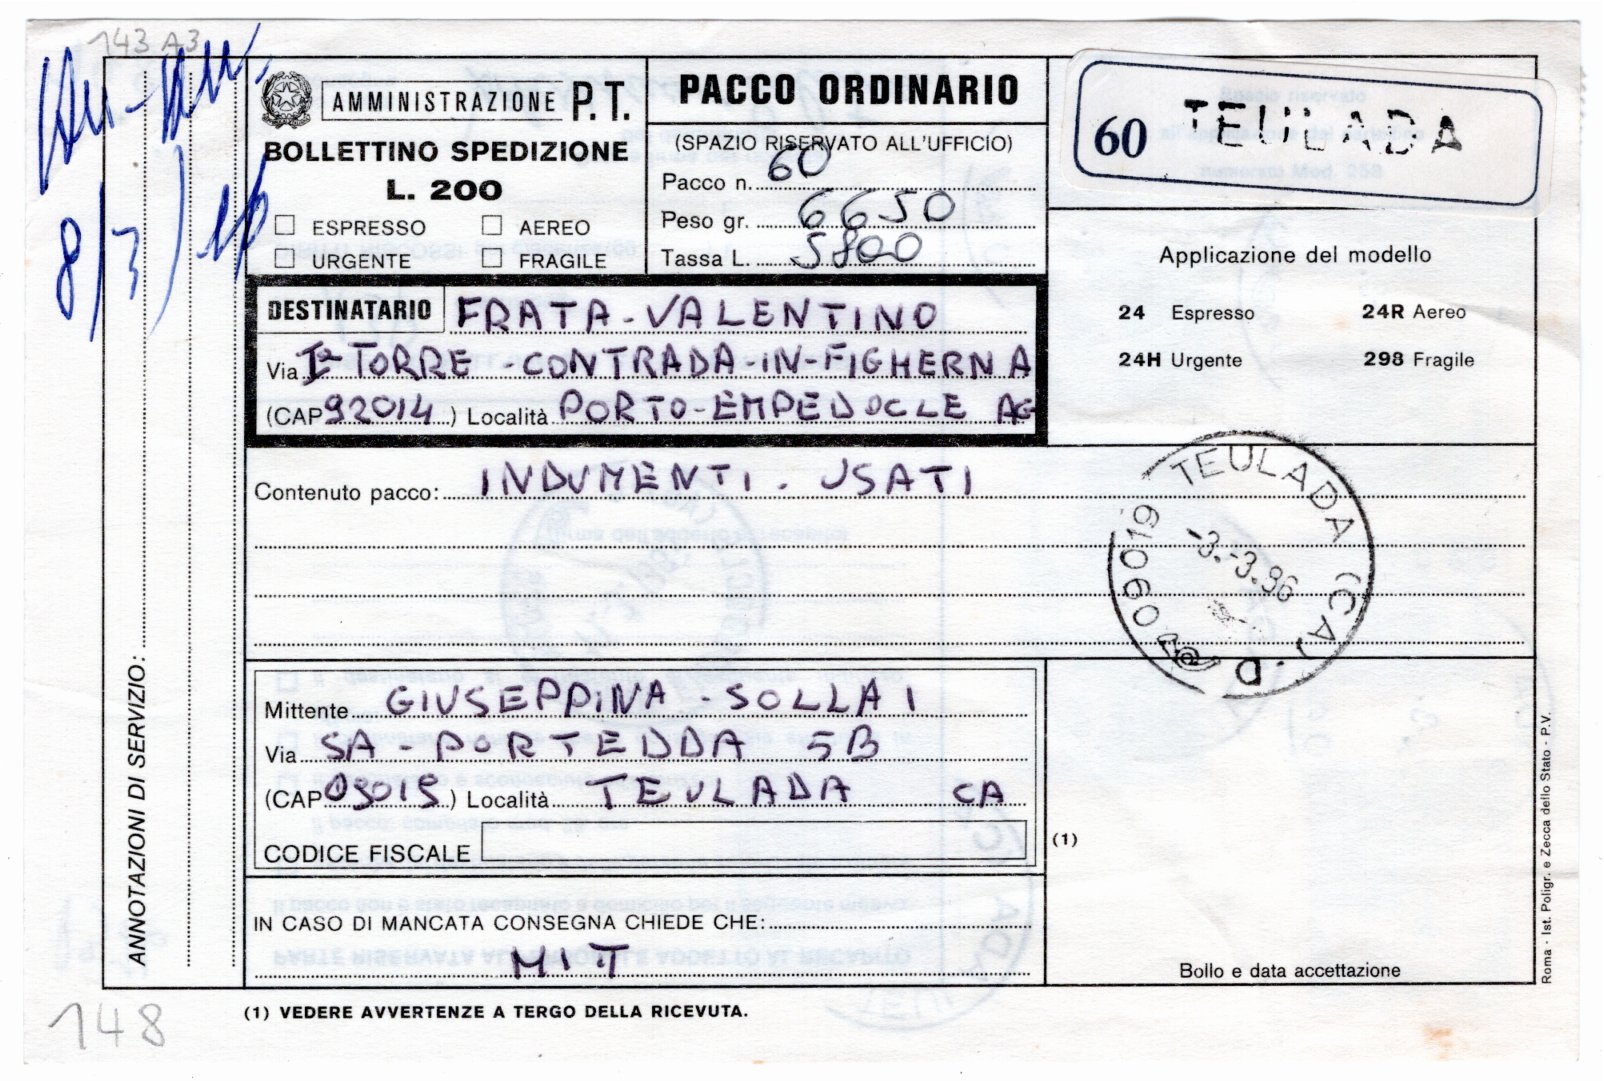 143 A3
AMMINISTRAZIONE P.T.
BOLLETTINO SPEDIZIONE
L. 200
ESPRESSO AEREO
URGENTE FRAGILE
PACCO ORDINARIO
(SPAZIO RISERVATO ALL'UFFICIO)
Pacco n. 60
Peso gr. 6650
Tassa L. 5800
60 TEULADA
Applicazione del modello
24 Espresso 24R Aereo
24H Urgente 298 Fragile
8/3/
DESTINATARIO FRATA-VALENTINO
Via Iª TORRE-CONTRADA-IN-FIGHERNA
(CAP 92014) Località PORTO-EMPEDOCLE AG
Contenuto pacco: INDUMENTI. USATI
09019 TEULADA (CA)
-3.-3.96
D.
Mittente GIUSEPPINA-SOLLAI
Via SA-PORTEDDA 5B
(CAP 09019) Località TEULADA CA
CODICE FISCALE
(1)
IN CASO DI MANCATA CONSEGNA CHIEDE CHE:
MIT
Bollo e data accettazione
ANNOTAZIONI DI SERVIZIO:
Roma - Ist. Poligr. e Zecca dello Stato - P.V.
(1) VEDERE AVVERTENZE A TERGO DELLA RICEVUTA.
148